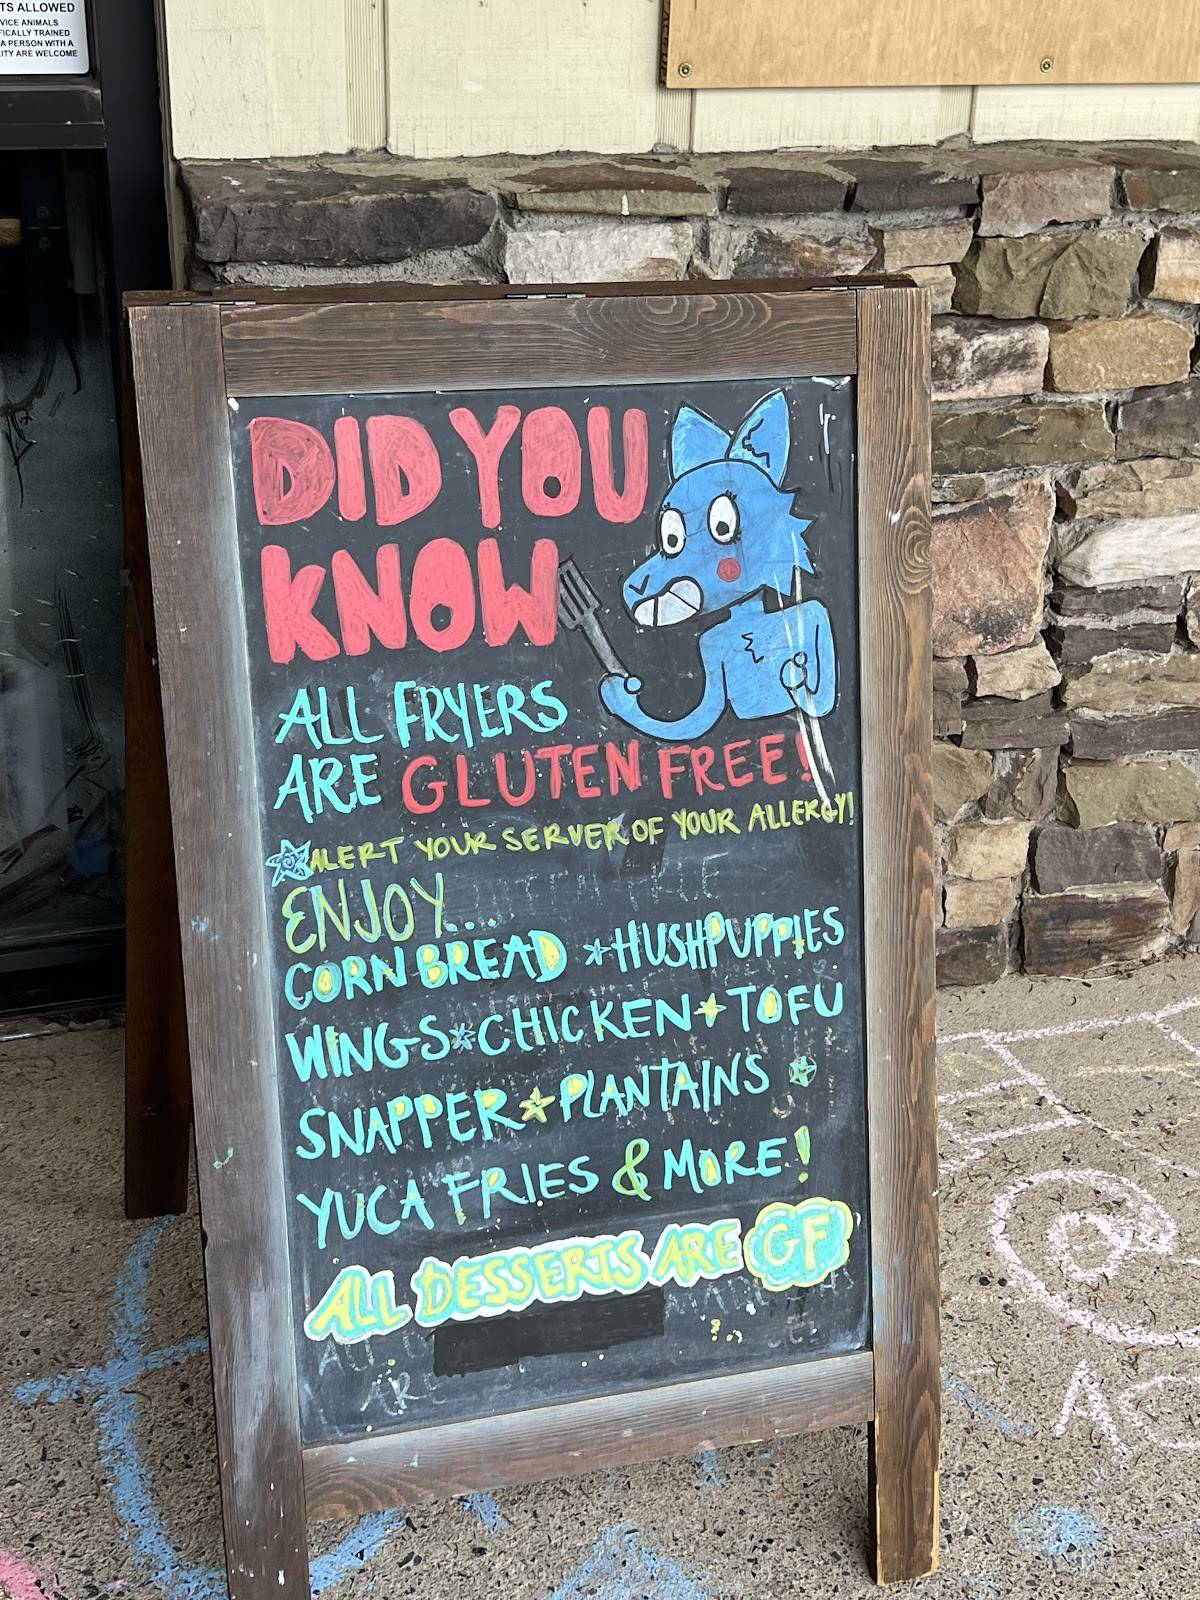 TS ALLOWED
VICE ANIMALS
FICALLY TRAINED
A PERSON WITH A
LITY ARE WELCOME
DID YOU
KNOW
ALL FRYERS
ARE GLUTEN FREE!
ALERT YOUR SERVER OF YOUR ALLERGY!
ENJOY...
CORN BREAD * HUSHPUPPIES
WINGS * CHICKEN * TOFU
SNAPPER * PLANTAINS *
YUCA FRIES & MORE!
ALL DESSERTS ARE GF
ALL
ARE